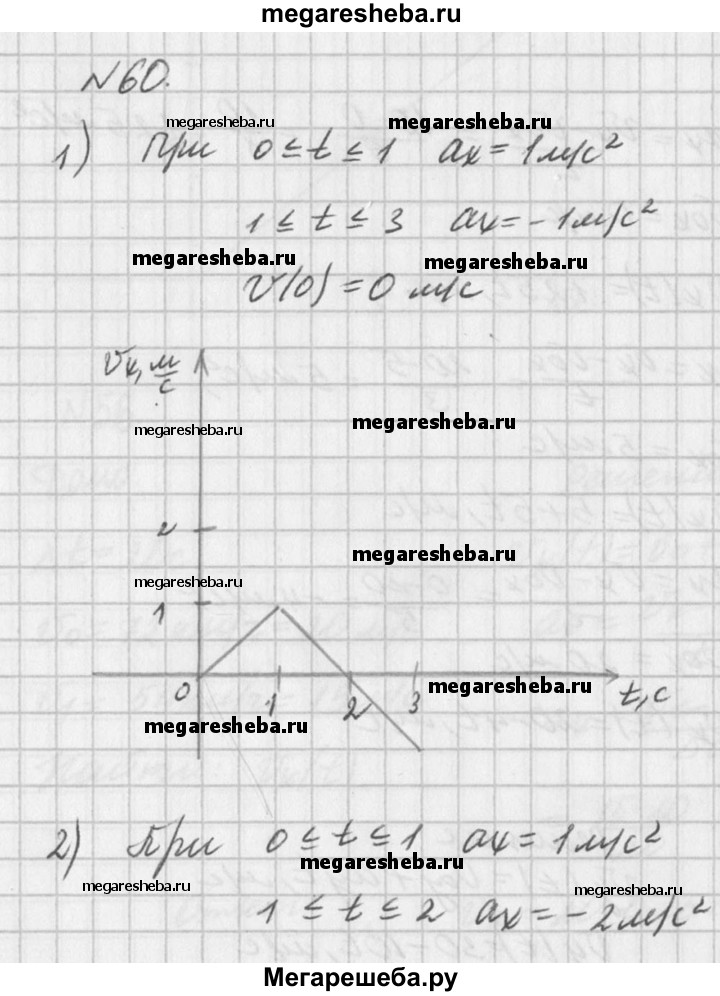 megaresheba.ru
№60.
megaresheba.ru megaresheba.ru
1) При 0 ≤ t ≤ 1 ax = 1 м/с²
1 ≤ t ≤ 3 ax = -1 м/с²
megaresheba.ru megaresheba.ru
v(0) = 0 м/с
vx, м/с
megaresheba.ru megaresheba.ru
2
megaresheba.ru megaresheba.ru
1
0 1 2 3 t, с
megaresheba.ru megaresheba.ru
2) При 0 ≤ t ≤ 1 ax = 1 м/с²
megaresheba.ru megaresheba.ru megaresheba.ru
1 ≤ t ≤ 2 ax = -2 м/с²
Мегарешеба.ру